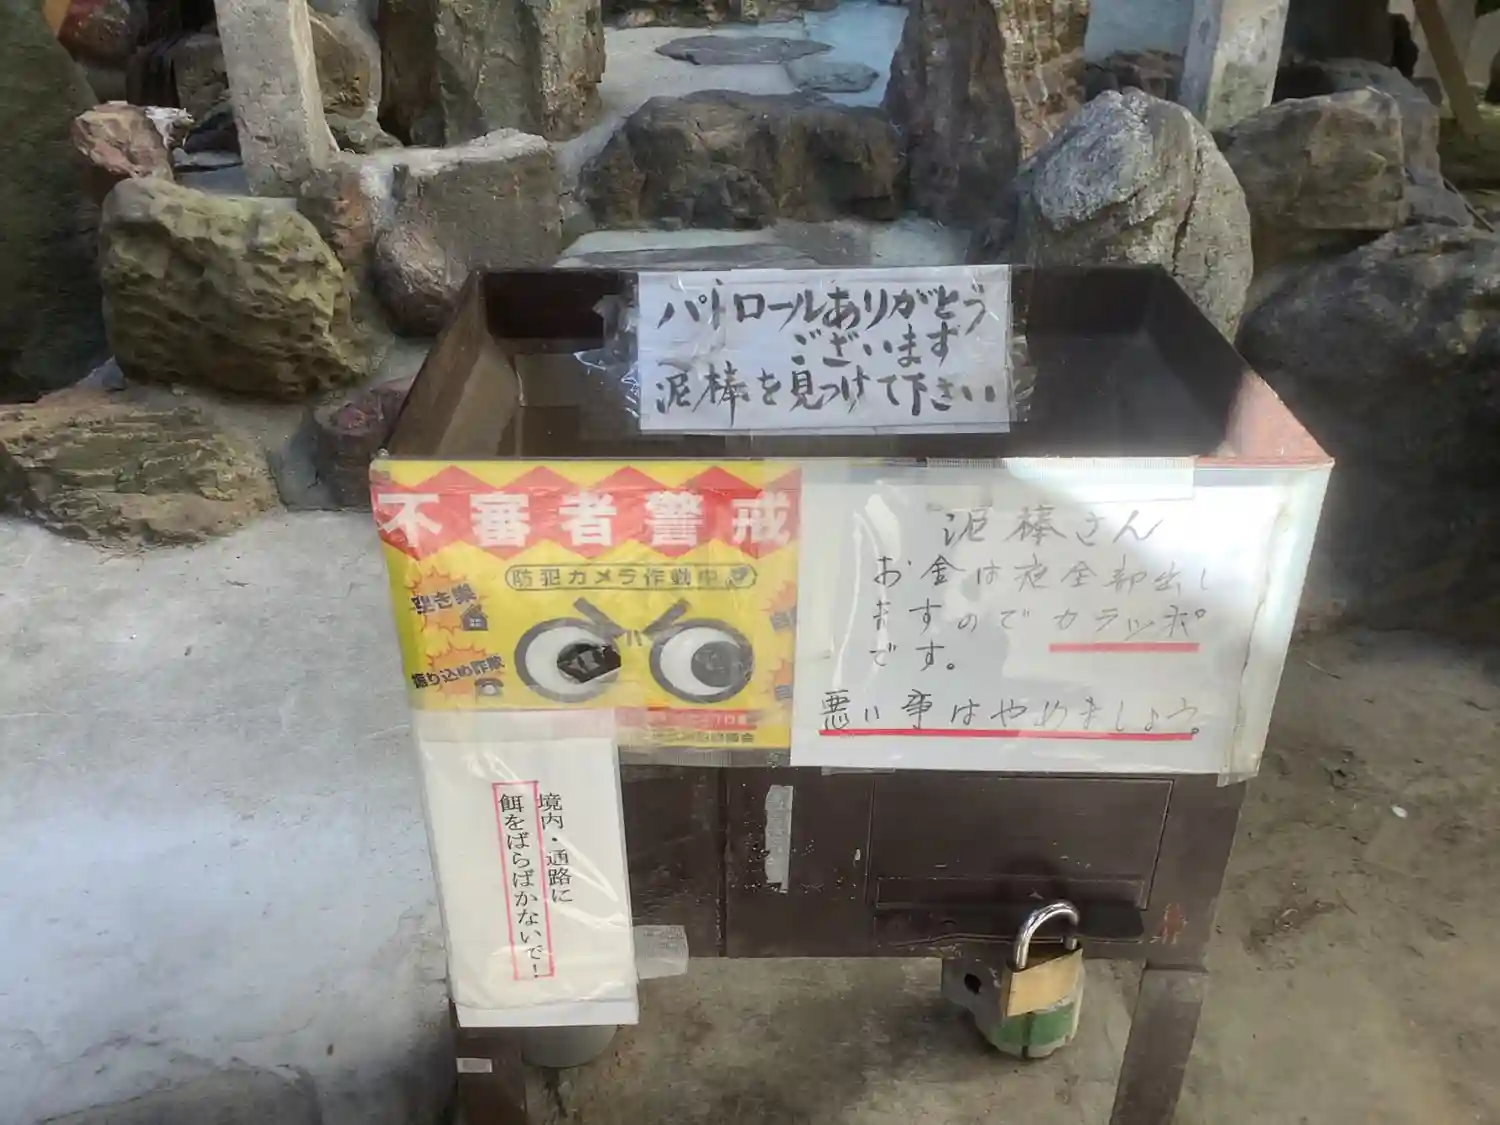 パトロールありがとう
ございます
泥棒を見つけて下さい
不審者警戒
防犯カメラ作戦中
空き巣
振り込め詐欺
泥棒さん
お金は夜全部出し
ますのでカラッポ
です。
悪い事はやめましょう。
境内・通路に
餌をばらばかないで!